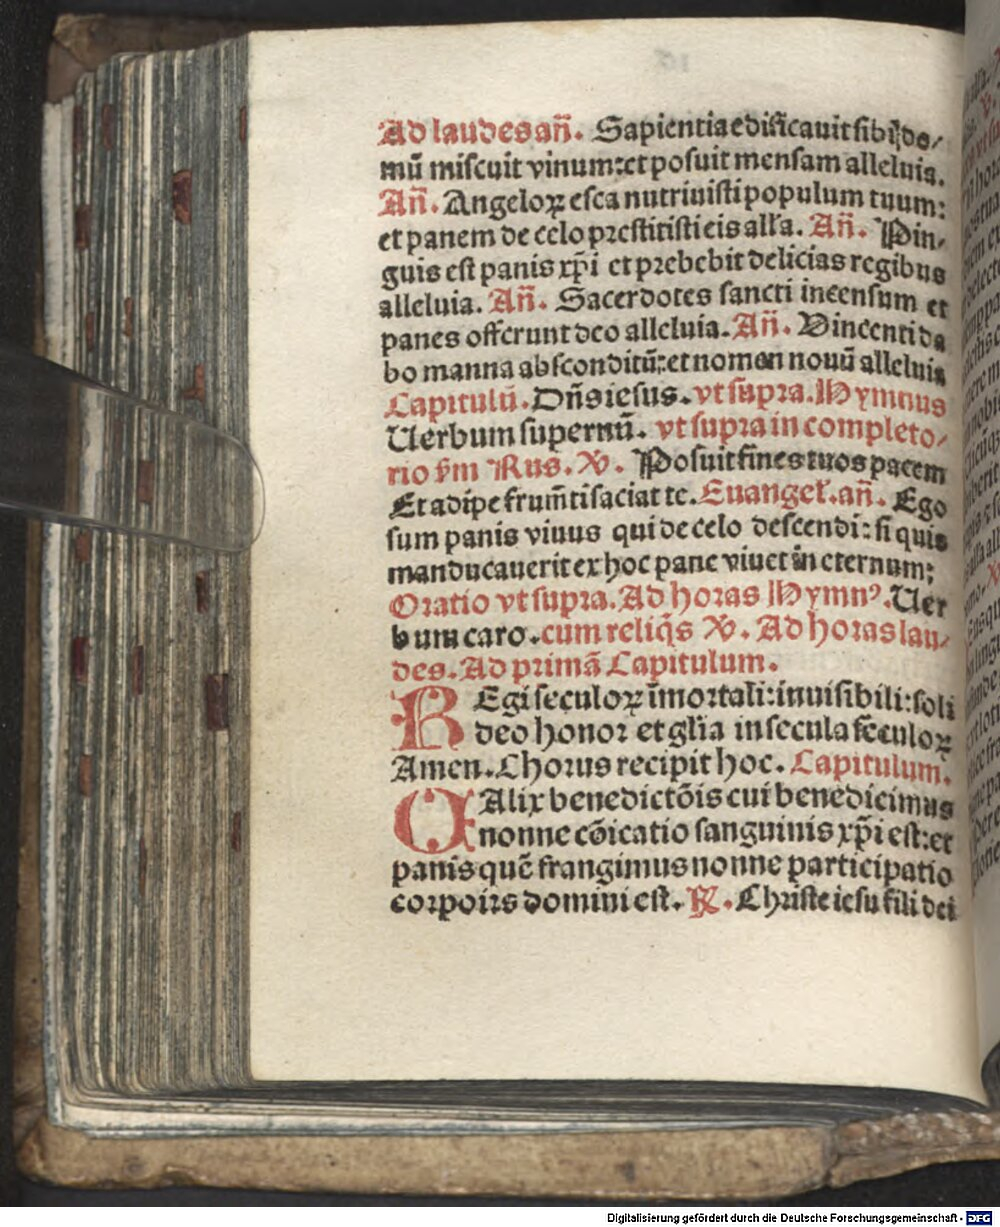 Ad laudes añ. Sapientia edificauit sibi do⸗
mū miscuit vinum: et posuit mensam alleluia.
Añ. Angeloꝝ esca nutriuisti populum tuum:
et panem de celo prestitisti eis alľa. Añ. Pin⸗
guis est panis xp̄i et prebebit delicias regibus
alleluia. Añ. Sacerdotes sancti incensum et
panes offerunt deo alleluia. Añ. Vincenti da
bo manna absconditū: et nomen nouū alleluia
Capitulū. Dñs iesus. vt supra. Hymnus
Uerbum supernū. vt supra in completo⸗
rio ẜm Rus. V. Posuit fines tuos pacem
Et adipe frumēti saciat te. Euangeł. añ. Ego
sum panis viuus qui de celo descendi: si quis
manducauerit ex hoc pane viuet in eternum:
Oratio vt supra. Ad horas Hymnꝰ. Uer
bum caro. cum reliq̄s V. Ad horas lau⸗
des. Ad primā Capitulum.
REgi seculoꝝ īmortali: inuisibili: soli
deo honor et gľia in secula seculoꝝ
Amen. Chorus recipit hoc. Capitulum.
CAlix benedictōis cui benedicimus
nonne cōicatio sanguinis xp̄i est: et
panis quē frangimus nonne participatio
corpoirs domini est. ℟. Christe iesu fili dei
Digitalisierung gefördert durch die Deutsche Forschungsgemeinschaft - DFG